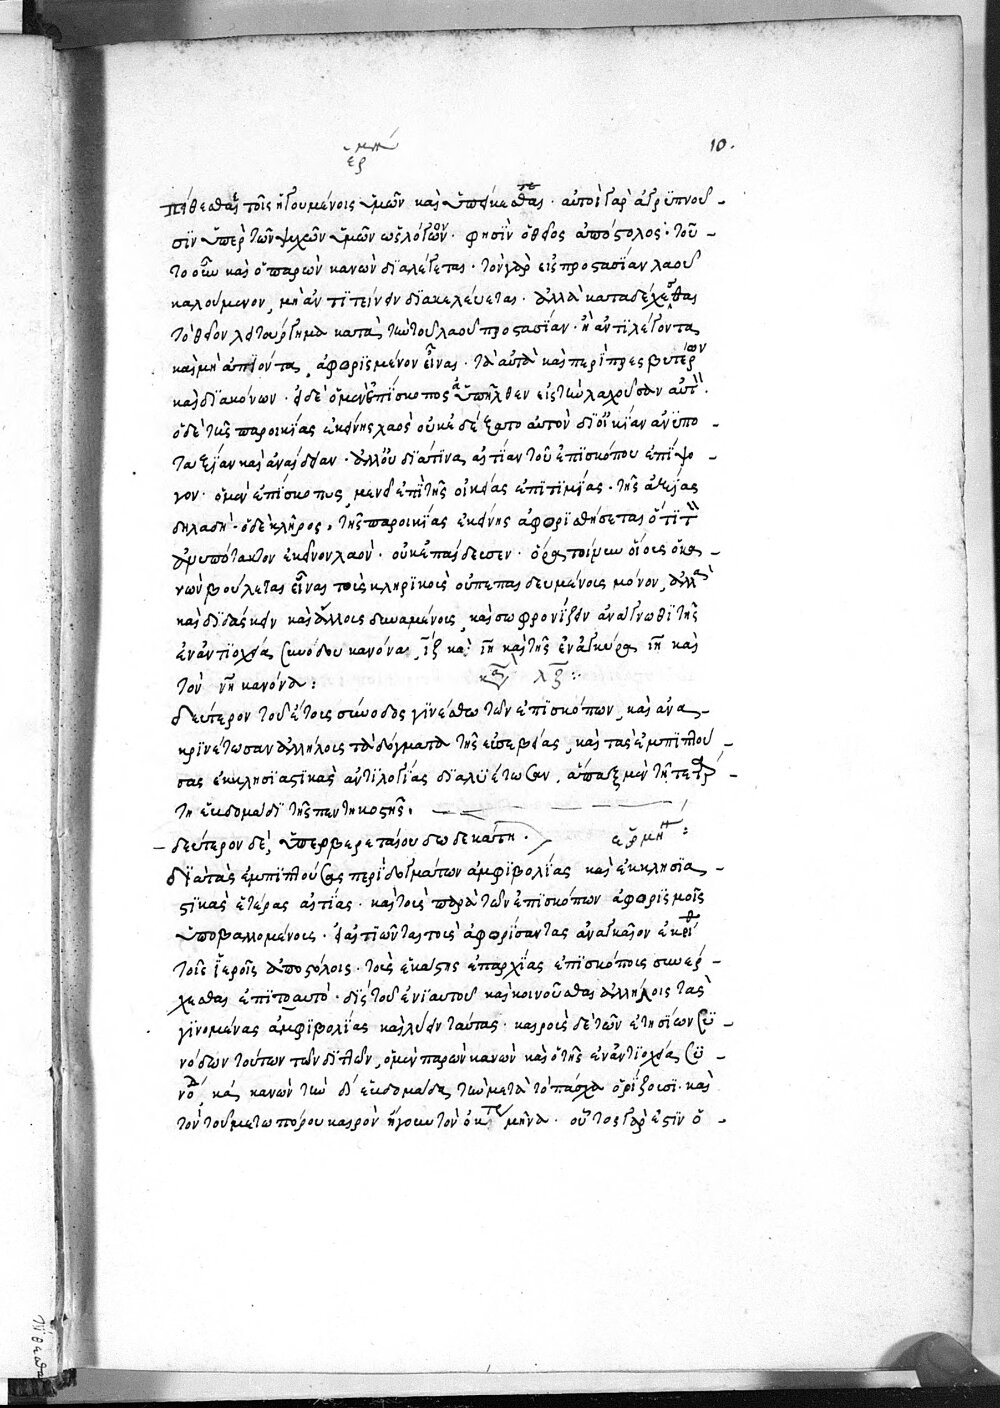 ἑρμη
10.
πείθεσθαι τοῖς ἡγουμένοις ὑμῶν καὶ ὑπείκετε· αὐτοὶ γὰρ ἀγρυπνοῦ-
σιν ὑπὲρ τῶν ψυχῶν ὑμῶν ὡς λόγον· φησὶν ὁ θεῖος ἀπόστολος· τοῦ-
το οὖν καὶ ὁ παρὼν κανὼν διαλέγεται· τὸν γὰρ εἰς προστασίαν λαοῦ
καλούμενον, μὴ ἀντιτείνειν διακελεύεται· ἀλλὰ καταδέχεσθαι
τὸ θεῖον λειτούργημα κατὰ τὴν τοῦ λαοῦ προστασίαν· ἢ ἀντιλέγοντα
καὶ μὴ ἀπιόντα, ἀφωρισμένον εἶναι· τὰ αὐτὰ καὶ περὶ πρεσβυτέρων
καὶ διακόνων· εἰ δὲ ὁ μὲν ἐπίσκοπος ὑπῆλθεν εἰς τὴν λαχοῦσαν αὐτῶ·
ὁ δὲ τῆς παροικίας ἐκείνης λαὸς οὐκ ἐδέξατο αὐτὸν δι' οἰκείαν ἀνυπο-
ταξίαν καὶ ἀναίδειαν· ἀλλ' οὐ διά τινα αἰτίαν τοῦ ἐπισκόπου ἐπίψο-
γον· ὁ μὲν ἐπίσκοπος, μενεῖ ἐπὶ τῆς οἰκείας ἐπιτιμίας· τῆς ἀξίας
δηλαδή· ὁ δὲ κλῆρος, τῆς παροικίας ἐκείνης ἀφορισθήσεται ὅτι τὸν
ἀνυπότακτον ἐκεῖνον λαὸν· οὐκ ἐπαίδευσεν· ὅρα τοίνυν οἵους ὁ κα-
νὼν βούλεται εἶναι τοὺς κληρικοὺς οὐ πεπαιδευμένους μόνον, ἀλλὰ
καὶ διδάσκειν καὶ ἄλλους δυναμένους, καὶ σωφρονίζειν ἀνάγνωθι τῆς
ἐν ἀντιοχείᾳ συνόδου κανόνα, ιζ καὶ ιη καὶ τῆς ἐν ἀγκύρᾳ ιη καὶ
τὸν νη κανόνα:
κξ λξ:
δεύτερον τοῦ ἔτους σύνοδος γινέσθω τῶν ἐπισκόπων, καὶ ἀνα-
κρινέτωσαν ἀλλήλοις τὰ δόγματα τῆς εὐσεβείας, καὶ τὰς ἐμπιπτού-
σας ἐκκλησιαστικὰς ἀντιλογίας διαλυέτωσαν, ἅπαξ μὲν τῇ τετάρ-
τῃ ἑβδομάδι τῆς πεντηκοστῆς.
δεύτερον δὲ, ὑπερβερεταίου δωδεκάτῃ. ἑρμη:
διὰ τὰς ἐμπιπτούσας περὶ δογμάτων ἀμφιβολίας καὶ ἐκκλησια-
στικὰς ἑτέρας αἰτίας· καὶ τοῖς παρὰ τῶν ἐπισκόπων ἀφορισμοῖς
ὑποβαλλομένοις· αἰτιῶνται τοὺς ἀφορίσαντας ἀναγκαῖον ἐκρίθ
τοῖς ἱεροῖς ἀποστόλοις· τοὺς ἑκάστης ἐπαρχίας ἐπισκόπους συνέρ-
χεσθαι ἐπὶ τὸ αυτὸ· δὶς τοῦ ἐνιαυτοῦ καὶ κοινοῦσθαι ἀλλήλοις τὰς
γινομένας ἀμφιβολίας καὶ λύειν ταύτας· καιροὺς δὲ τῶν ἐτησίων συ-
νόδων τούτων τῶν διττῶν, ὁ μὲν παρὼν κανὼν καὶ ὁ τῆς ἐν ἀντιοχείᾳ συ-
νόδ, κ, κανὼν τὴν δ' ἑβδομάδα, τὴν μετὰ τὸ πάσχα ὁρίζουσι· καὶ
τὸν τοῦ μετωπόρου καιρὸν ἤγουν τὸν ὀκτώ μῆνα· οὗτος γάρ ἐστιν ὁ-